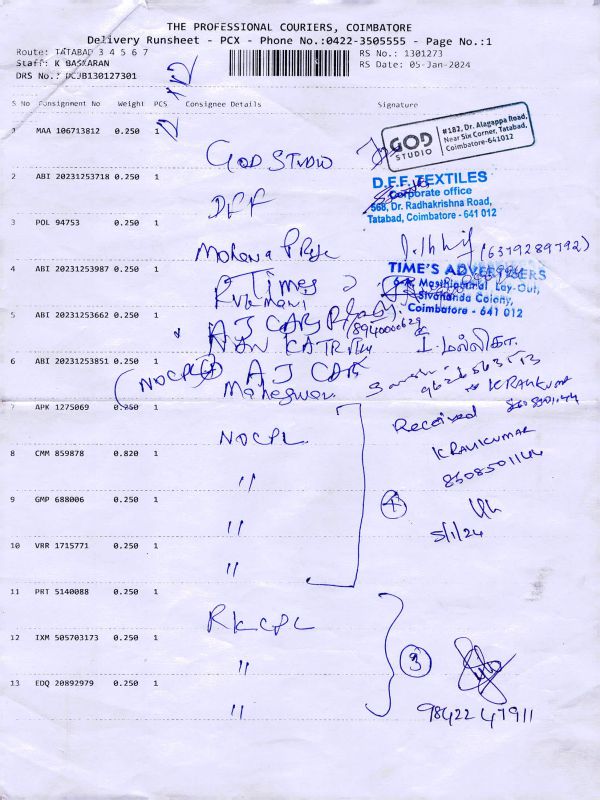 THE PROFESSIONAL COURIERS, COIMBATORE
Delivery Runsheet - PCX - Phone No.:0422-3505555 - Page No.:1
Route: TATABAD 3 4 5 6 7 RS No.: 1301273
Staff: K BASKARAN RS Date: 05-Jan-2024
DRS No.: PCJB130127301
S No Consignment No Weight PCS Consignee Details Signature
1 MAA 106713812 0.250 1 GOD STUDIO
GOD STUDIO #182, Dr. Alagappa Road, Near Six Corner, Tatabad, Coimbatore-641012
2 ABI 20231253718 0.250 1 DFF
D.F.F. TEXTILES
Corporate office
568, Dr. Radhakrishna Road,
Tatabad, Coimbatore - 641 012
3 POL 94753 0.250 1 (6379289792)
4 ABI 20231253987 0.250 1 Times
Rukmani
TIME'S ADVERTISERS
Sivananda Colony,
Coimbatore - 641 012
5 ABI 20231253662 0.250 1 A J CARS
8940000629
6 ABI 20231253851 0.250 1 A J CAR
(NOCPL Maheswari
7 APK 1275069 0.250 1 NOCPL
Received
K RAVIKUMAR
8608501144
8 CMM 859878 0.820 1 "
9 GMP 688006 0.250 1 " 4
5/1/24
10 VRR 1715771 0.250 1 "
11 PRT 5140088 0.250 1 RKCPL
12 IXM 505703173 0.250 1 " 3
13 EDQ 20892979 0.250 1 "
98422 47911